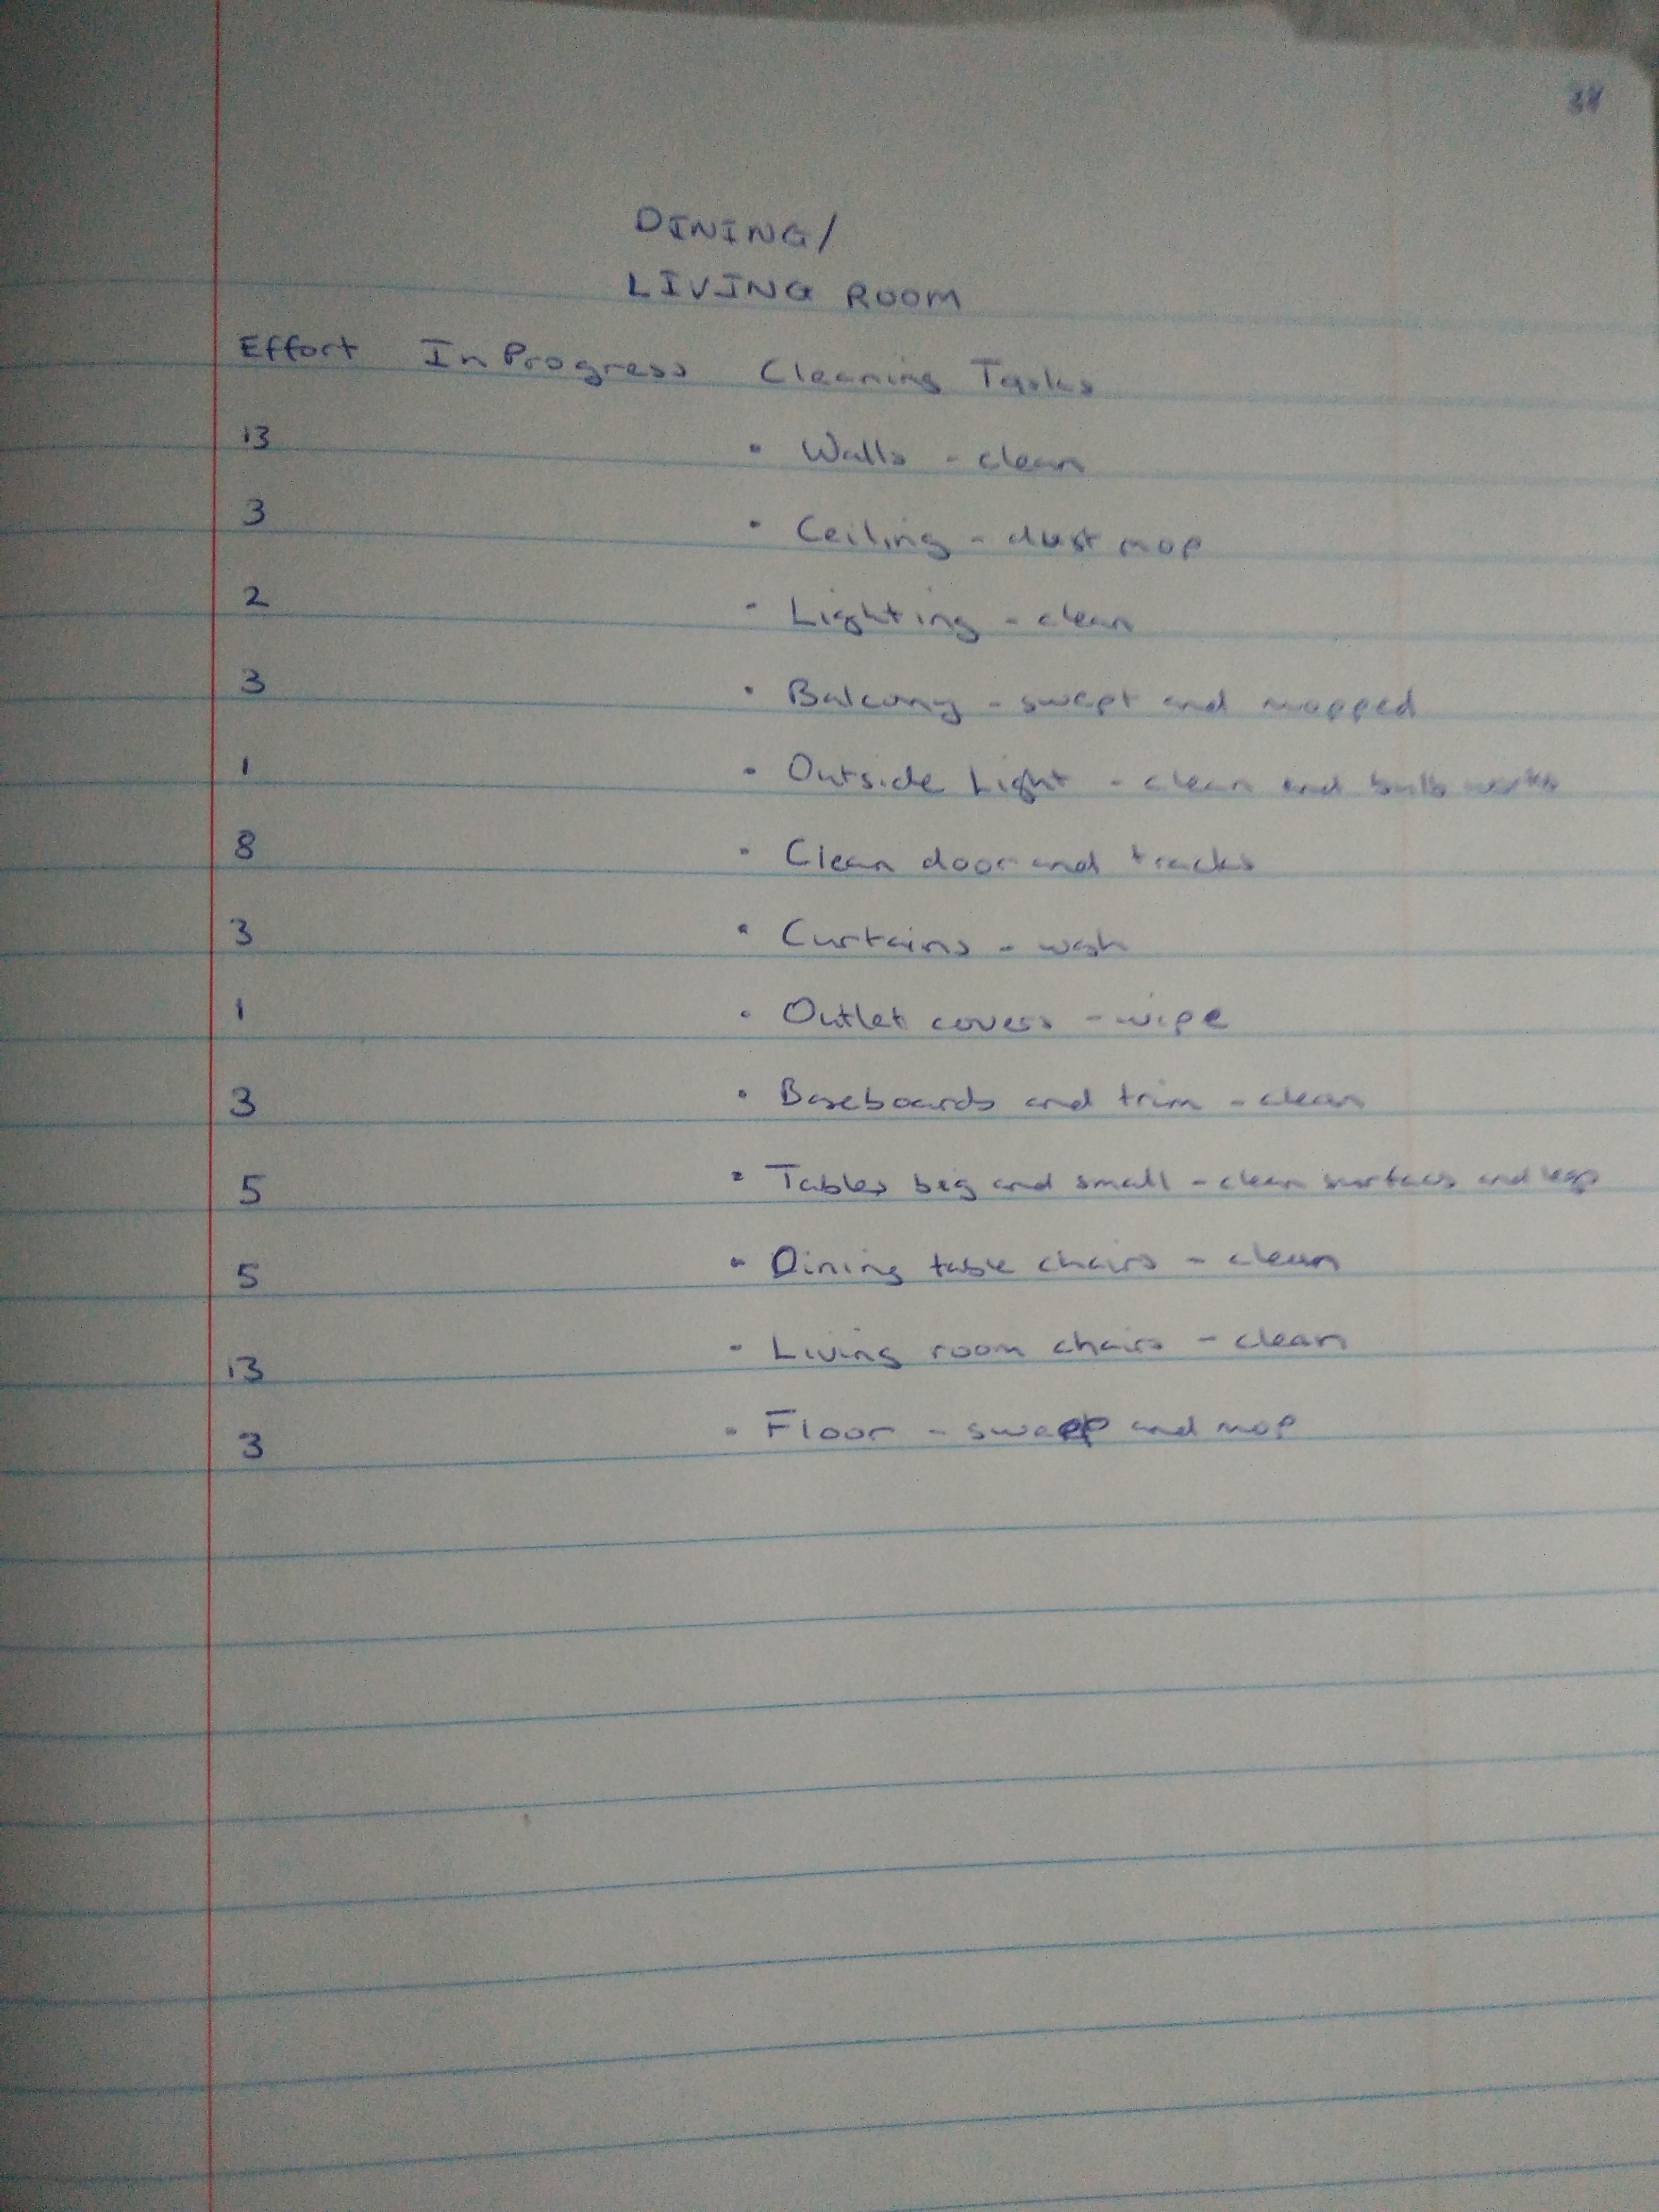 DINING/
LIVING ROOM
Effort In Progress Cleaning Tasks
13 • Walls - clean
3 • Ceiling - dust mop
2 • Lighting - clean
3 • Balcony - swept and mopped
1 • Outside Light - clean and bulb works
8 • Clean door and tracks
3 • Curtains - wash
1 • Outlet covers - wipe
3 • Baseboards and trim - clean
5 • Tables big and small - clean surfaces and legs
5 • Dining table chairs - clean
13 • Living room chairs - clean
3 • Floor - sweep and mop